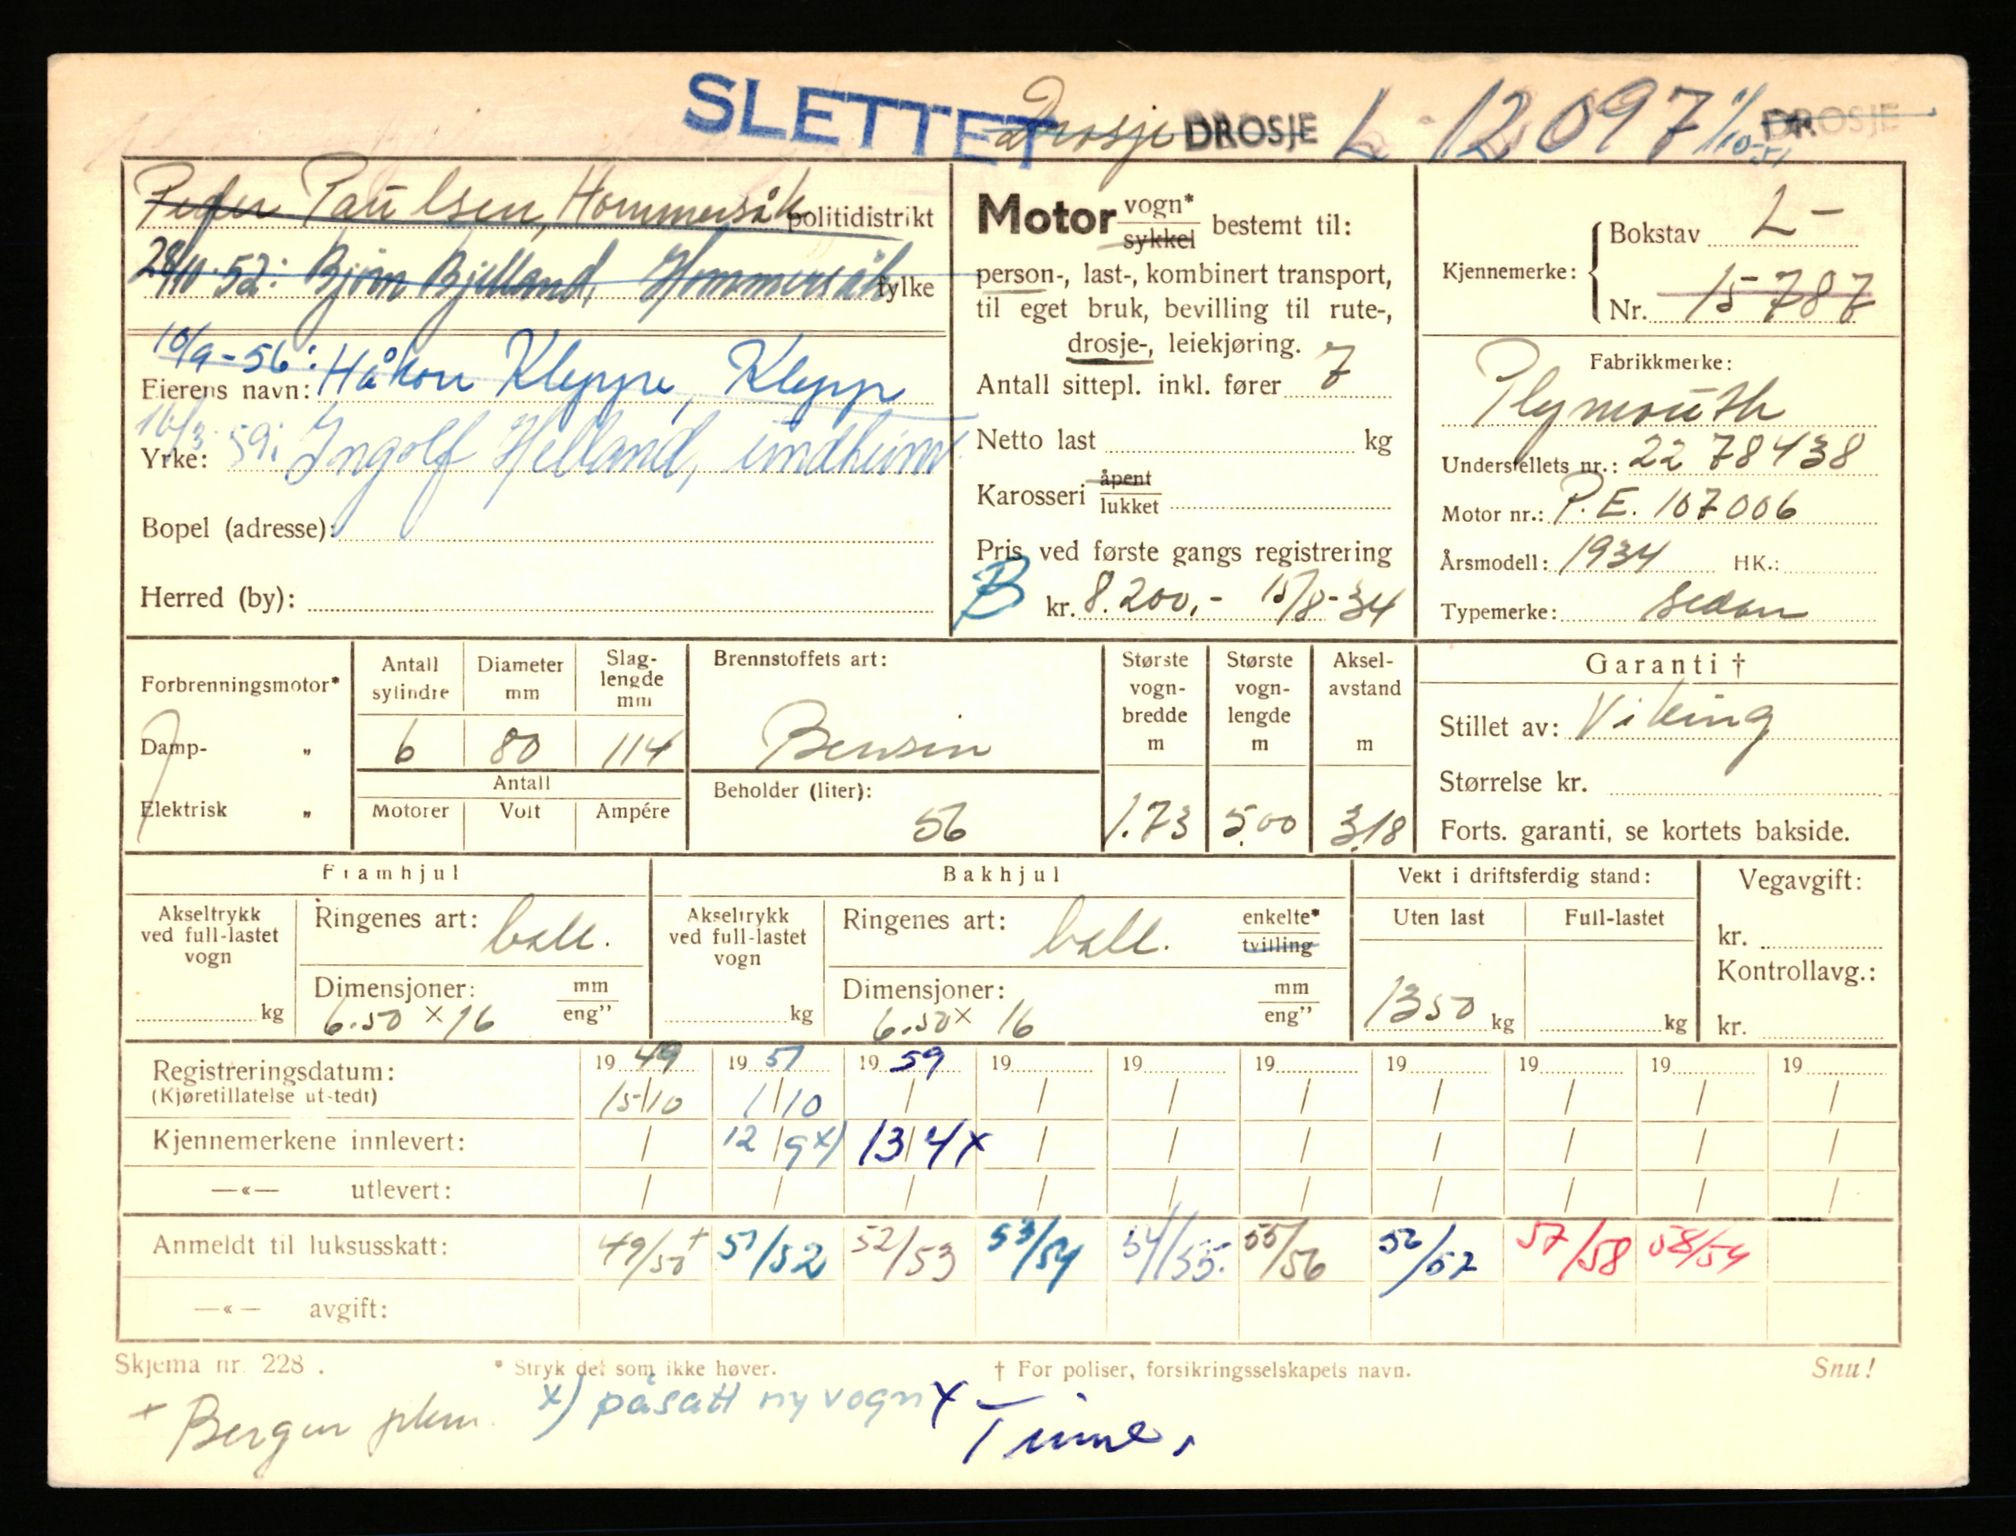 SLETTET Drosje DROSJE L 12097 1/10-51 DROSJE
Peder Paulsen, Hommersåk politidistrikt
28/10-52: Bjørn Bjelland, Hommersåk fylke
10/9-56: Håkon Kleppe, Klepp
Eierens navn:
16/3-59: Ingolf Helland, Undheim
Yrke:
Bopel (adresse):
Herred (by):
Motor vogn* sykkel bestemt til:
person-, last-, kombinert transport,
til eget bruk, bevilling til rute-,
drosje-, leiekjøring.
Antall sittepl. inkl. fører 7
Netto last kg
Karosseri åpent lukket
Pris ved første gangs registrering
B kr. 8.200,- 15/8-34
Kjennemerke: Bokstav L-
Nr. 15787
Fabrikkmerke:
Plymouth
Understellets nr.: 2278438
Motor nr.: P.E. 107006
Årsmodell: 1934 HK.:
Typemerke: Sedan
Forbrenningsmotor*
Damp- "
Elektrisk "
Antall sylindre Diameter mm Slaglengde mm
6 80 114
Antall
Motorer Volt Ampére
Brennstoffets art:
Bensin
Beholder (liter):
56
Største vogn-bredde m Største vogn-lengde m Aksel-avstand m
1.73 5.00 3.18
Garanti †
Stillet av: Viking
Størrelse kr.
Forts. garanti, se kortets bakside.
Framhjul
Akseltrykk ved full-lastet vogn kg
Ringenes art: ball.
Dimensjoner: mm eng"
6.50 × 16
Bakhjul
Akseltrykk ved full-lastet vogn kg
Ringenes art: ball. enkelte* tvilling
Dimensjoner: mm eng"
6.50 × 16
Vekt i driftsferdig stand:
Uten last Full-lastet
1350 kg kg
Vegavgift:
kr.
Kontrollavg.:
kr.
Registreringsdatum: 1949 1951 1959 19 19 19 19 19 19 19
(Kjøretillatelse utstedt) 15/10 1/10 / / / / / / / /
Kjennemerkene innlevert: / 12/9 x) 13/4 x / / / / / / /
—«— utlevert: / / / / / / / / / /
Anmeldt til luksusskatt: 49/50+ 51/52 52/53 53/54 54/55. 55/56 56/57 57/58 58/59
—«— avgift:
Skjema nr. 228. * Stryk det som ikke høver. † For poliser, forsikringsselskapets navn. Snu!
+ Bergen x) påsatt ny vogn x